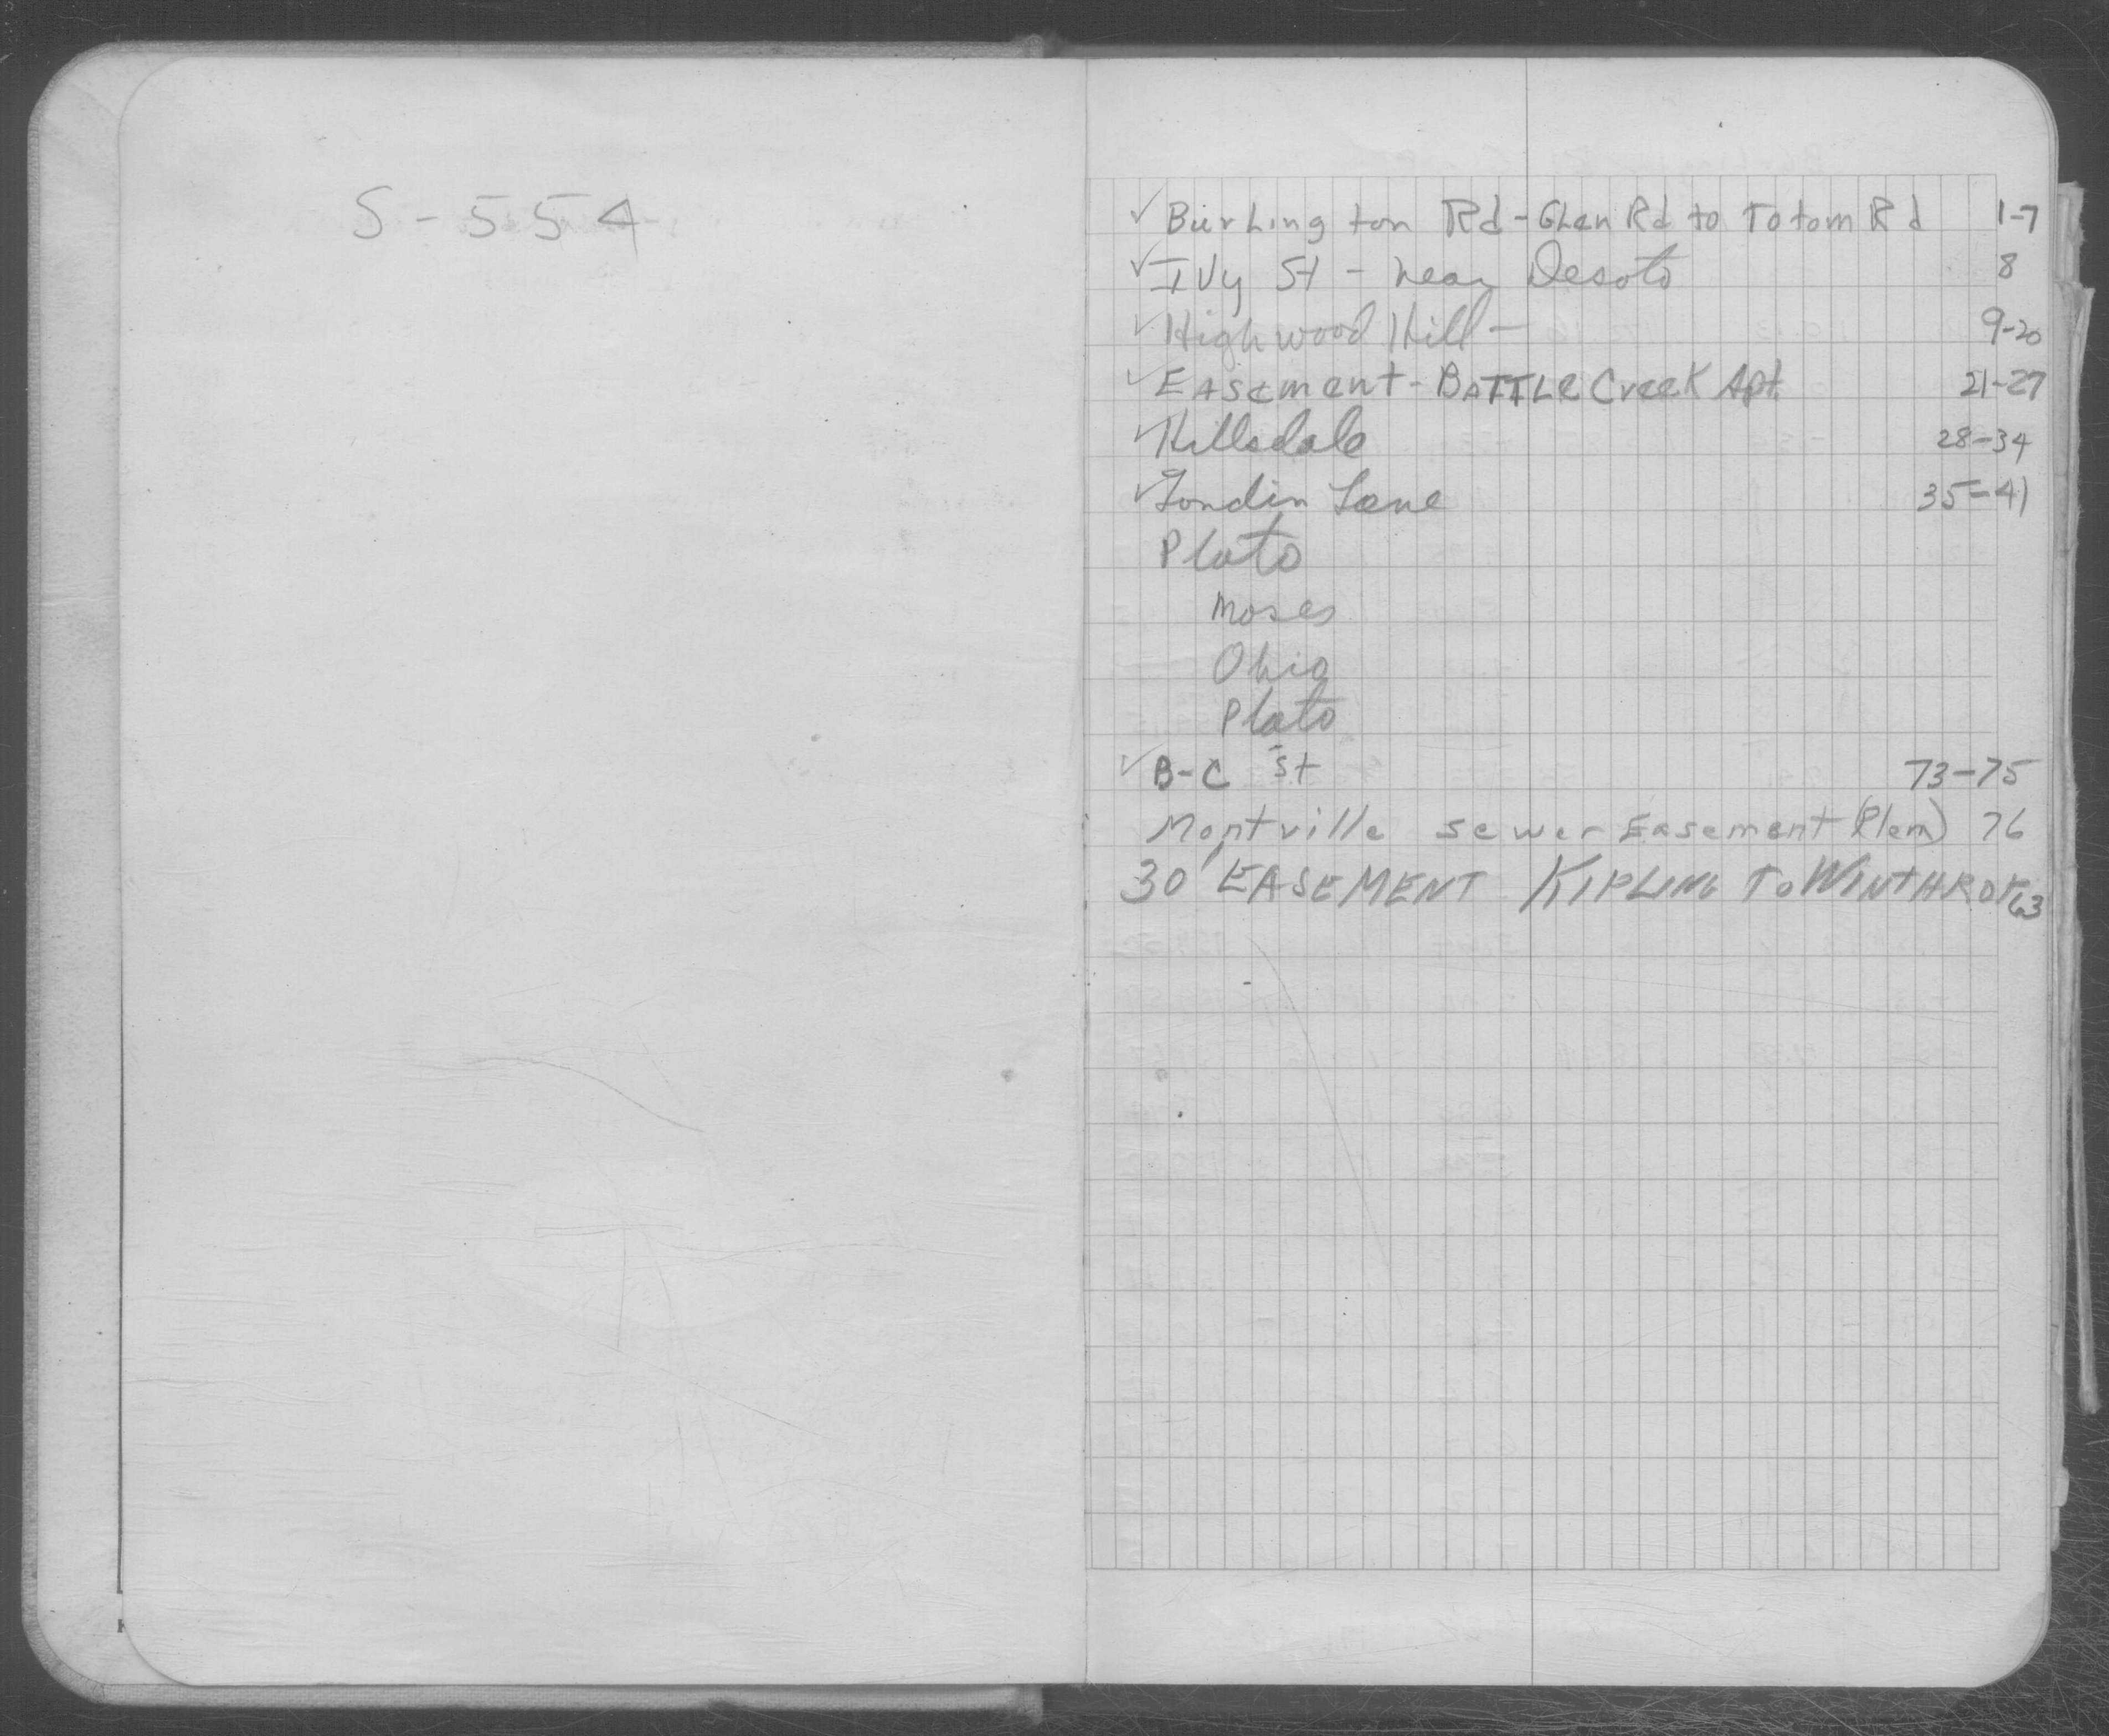 S-554
✓ Burlington Rd - GLen Rd to Totom Rd 1-7
✓ IVy St - near Desoto 8
✓ Highwood Hill - 9-20
✓ EASement - BATTLe CreeK Apt. 21-27
✓ Hillsdale 28-34
✓ Londin Lane 35-41
Plato
Moses
Ohio
Plato
✓ B-C St 73-75
Montville sewer Easement (Plem) 76
30' EASEMENT KIPLING To WINTHROP 63